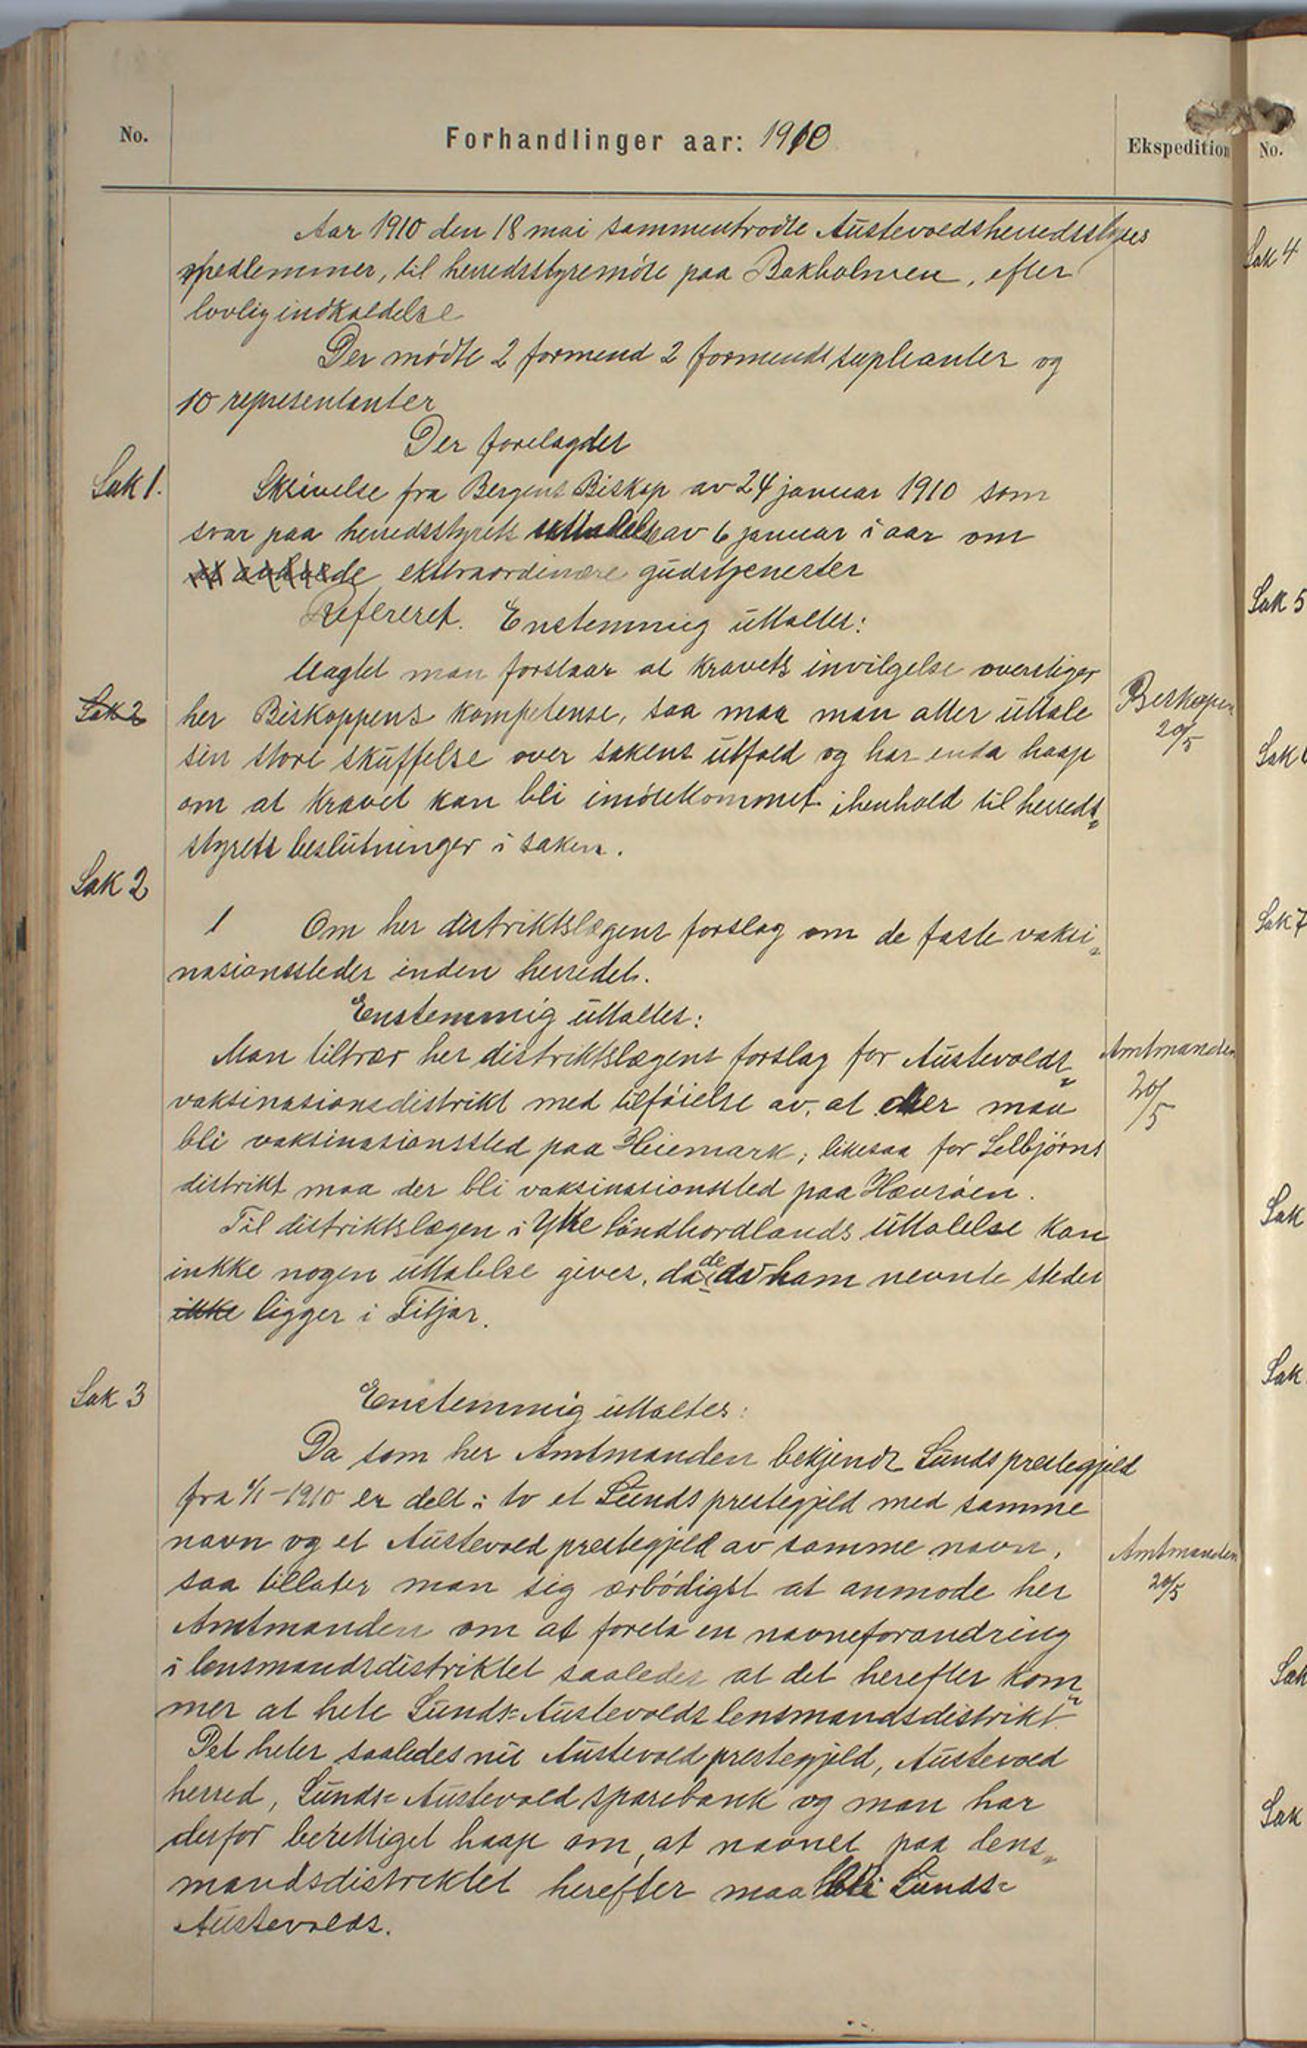 No.
Forhandlinger aar: 1910
Ekspedition
No.
Aar 1910 den 18 mai sammentrodte Austevoldsherredsstyres
medlemmer, til herredsstyremöte paa Bakholmen, efter
lovlig indkaldelse
Der mødte 2 formend 2 formends supleanter og
10 representanter
Der forelagdes
Sak 1.
Skrivelse fra Bergens Biskop av 24 januar 1910 som
svar paa herredsstyrets uttalelse av 6 januar i aar om
de ekstraordinære gudstjenester
Refereret. Enstemmig uttaltes:
Uagtet man forstaar at kravets invilgelse overstiger
Sak 2
her Biskoppens kompetense, saa maa man atter uttale
Biskopen
20/5
sin store skuffelse over sakens utfald og har enda haap
om at kravet kan bli imötekommet ihenhold til herreds=
styrets beslutninger i saken.
Sak 2
1 Om her distriktslægens forslag om de faste vaksi=
nasionssteder inden herredet.
Enstemmig uttaltes:
Man tiltrær her distriktslægens forslag for Austevolds=
Amtmanden
20/5
vaksinasionsdistrikt med tilföielse av, at der maa
bli vaksinasionssted paa Heiemark; likesaa for Selbjörns
distrikt maa der bli vaksinasionssted paa Hævröen.
Til distriktslægen i Ytre Söndhordlands uttalelse kan
inkke nogen uttalelse gives, da de av ham nevnte steder
ikke ligger i Fitjar.
Sak 3
Enstemmig uttaltes:
Da som her Amtmanden bekjendt Sunds prestegjeld
fra 1/1-1910 er delt i to et Sunds prestegjeld med samme
navn og et Austevold prestegjeld av samme navn,
Amtmanden
20/5
saa tillater man sig ærbödigst at anmode her
Amtmanden om at foreta en navneforandring
i lensmandsdistriktet saaledes at det herefter kom=
mer at hete Sunds=Austevolds lensmandsdistrikt.
Det heter saaledes nu Austevold prestegjeld, Austevold
herred, Sunds=Austevold sparebank og man har
derfor berettiget haap om, at navnet paa lens=
mandsdistriktet herefter maa bli Sunds=
Austevolds.
Sak 4
Sak 5
Sak
Sak 7
Sak
Sak
Sak
Sak